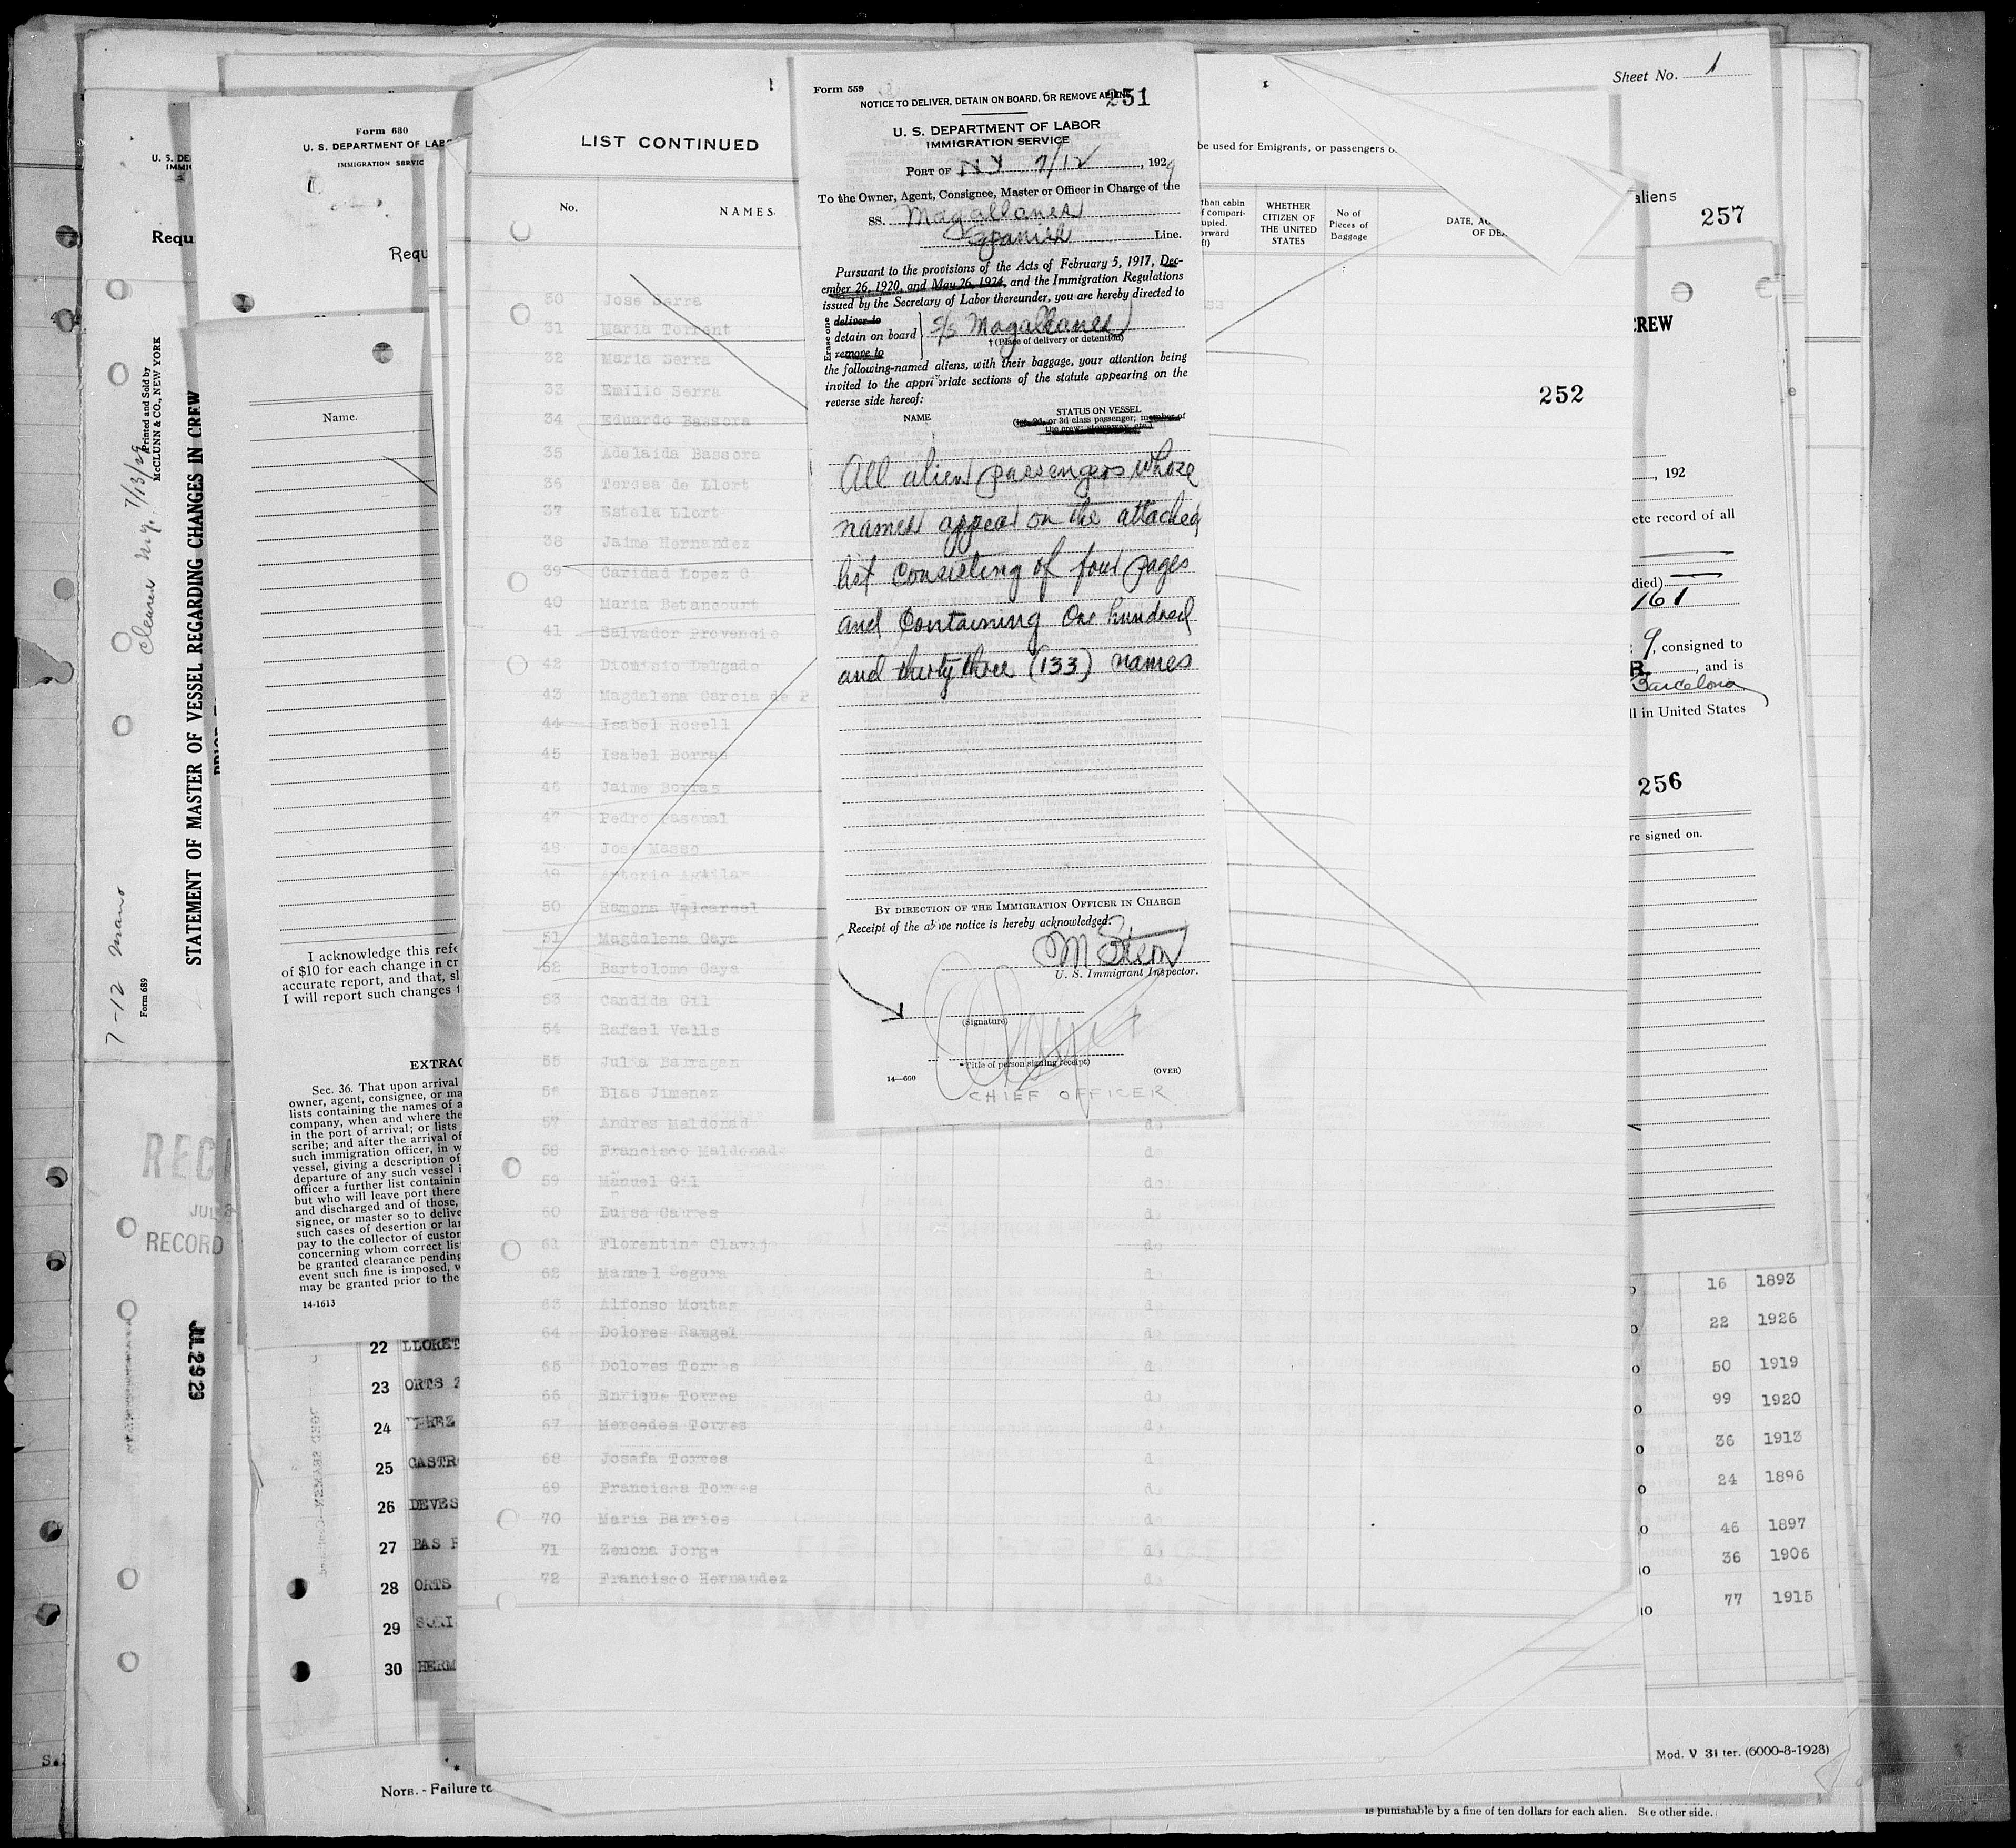 Sheet No. 1
Form 559
NOTICE TO DELIVER, DETAIN ON BOARD, OR REMOVE ALIENS
251
U. S. DEPARTMENT OF LABOR
IMMIGRATION SERVICE
PORT OF N Y 7/12, 1929
To the Owner, Agent, Consignee, Master or Officer in Charge of the
SS. Magallanes
Spanish Line.
Pursuant to the provisions of the Acts of February 5, 1917, Dec-
ember 26, 1920, and May 26, 1924, and the Immigration Regulations
issued by the Secretary of Labor thereunder, you are hereby directed to
Erase one
deliver to
detain on board
remove to
S/S Magallanes
† (Place of delivery or detention)
the following-named aliens, with their baggage, your attention being
invited to the appropriate sections of the statute appearing on the
reverse side hereof:
NAME
STATUS ON VESSEL
(1st, 2d, or 3d class passenger; member of
the crew; stowaway, etc.)
All alien passengers whose
names appear on the attached
list consisting of four pages
and containing One hundred
and thirty three (133) names
BY DIRECTION OF THE IMMIGRATION OFFICER IN CHARGE
Receipt of the above notice is hereby acknowledged:
U. S. Immigrant Inspector.
(Signature)
*Title of person signing receipt)
14—660
(OVER)
CHIEF OFFICER
LIST CONTINUED
No.
NAMES
30 Jose Serra
31 Maria Torrent
32 Maria Serra
33 Emilio Serra
34 Eduardo Bassora
35 Adelaida Bassora
36 Teresa de Llort
37 Estela Llort
38 Jaime Hernandez
39 Caridad Lopez G
40 Maria Betancourt
41 Salvador Provencio
42 Dionisio Delgado
43 Magdalena Garcia de P
44 Isabel Rosell
45 Isabel Borras
46 Jaime Borras
47 Pedro Pascual
48 Jose Masso
49 Antonio Aguilar
50 Ramona Valcarcel
51 Magdalena Gaya
52 Bartolome Gaya
53 Candida Gil
54 Rafael Valls
55 Julia Barragan
56 Blas Jimenez
57 Andres Maldonad do
58 Francisco Maldonado d
59 Manuel Gil do
60 Luisa d
61 Florentino Clavijo do
62 Manuel Segura d
63 Alfonso Moutas d
64 Dolores Rangel d
65 Dolores Torres d
66 Enrique Torres do
67 Mercedes Torres d
68 Josefa Torres d
69 Francisca Torres d
70 Maria Barrios d
71 Zenona Jorge d
72 Francisco Hernandez d
be used for Emigrants, or passengers o
than cabin
f compart-
upied.
orward
ft)
WHETHER
CITIZEN OF
THE UNITED
STATES
No of
Pieces of
Baggage
DATE,
OF DE
252
aliens
257
CREW
, 192
ete record of all
died)
161
9, consigned to
R., and is
Barcelona
ll in United States
256
re signed on.
16 1893
22 1926
50 1919
99 1920
36 1913
24 1896
46 1897
36 1906
77 1915
Mod. V 31 ter. (6000-8-1928)
is punishable by a fine of ten dollars for each alien. See other side.
Form 680
U. S. DEPARTMENT OF LAB
IMMIGRATION SERVIC
Requ
Name.
I acknowledge this refe
of $10 for each change in cr
accurate report, and that, sh
I will report such changes t
EXTRAC
Sec. 36. That upon arrival
owner, agent, consignee, or ma
lists containing the names of a
company, when and where the
in the port of arrival; or lists
scribe; and after the arrival of
such immigration officer, in w
vessel, giving a description of
departure of any such vessel i
officer a further list containin
but who will leave port there
and discharged and of those,
signee, or master so to delive
such cases of desertion or lan
pay to the collector of custom
concerning whom correct lis
be granted clearance pending
event such fine is imposed, w
may be granted prior to the
14-1613
22 LLORET
23 ORTS
24 PEREZ
25 CASTR
26 DEVES
27 BAS
28 ORTS
29 SORI
30 HERM
NOTE. - Failure to
U. S. DE
IMMIG
Requ
Printed and Sold by
McCLUNN & CO., NEW YORK
STATEMENT OF MASTER OF VESSEL REGARDING CHANGES IN CREW
Cleared N.Y. 7/13/29
Form 689
REC
JUL
RECORD
JUL 29 29